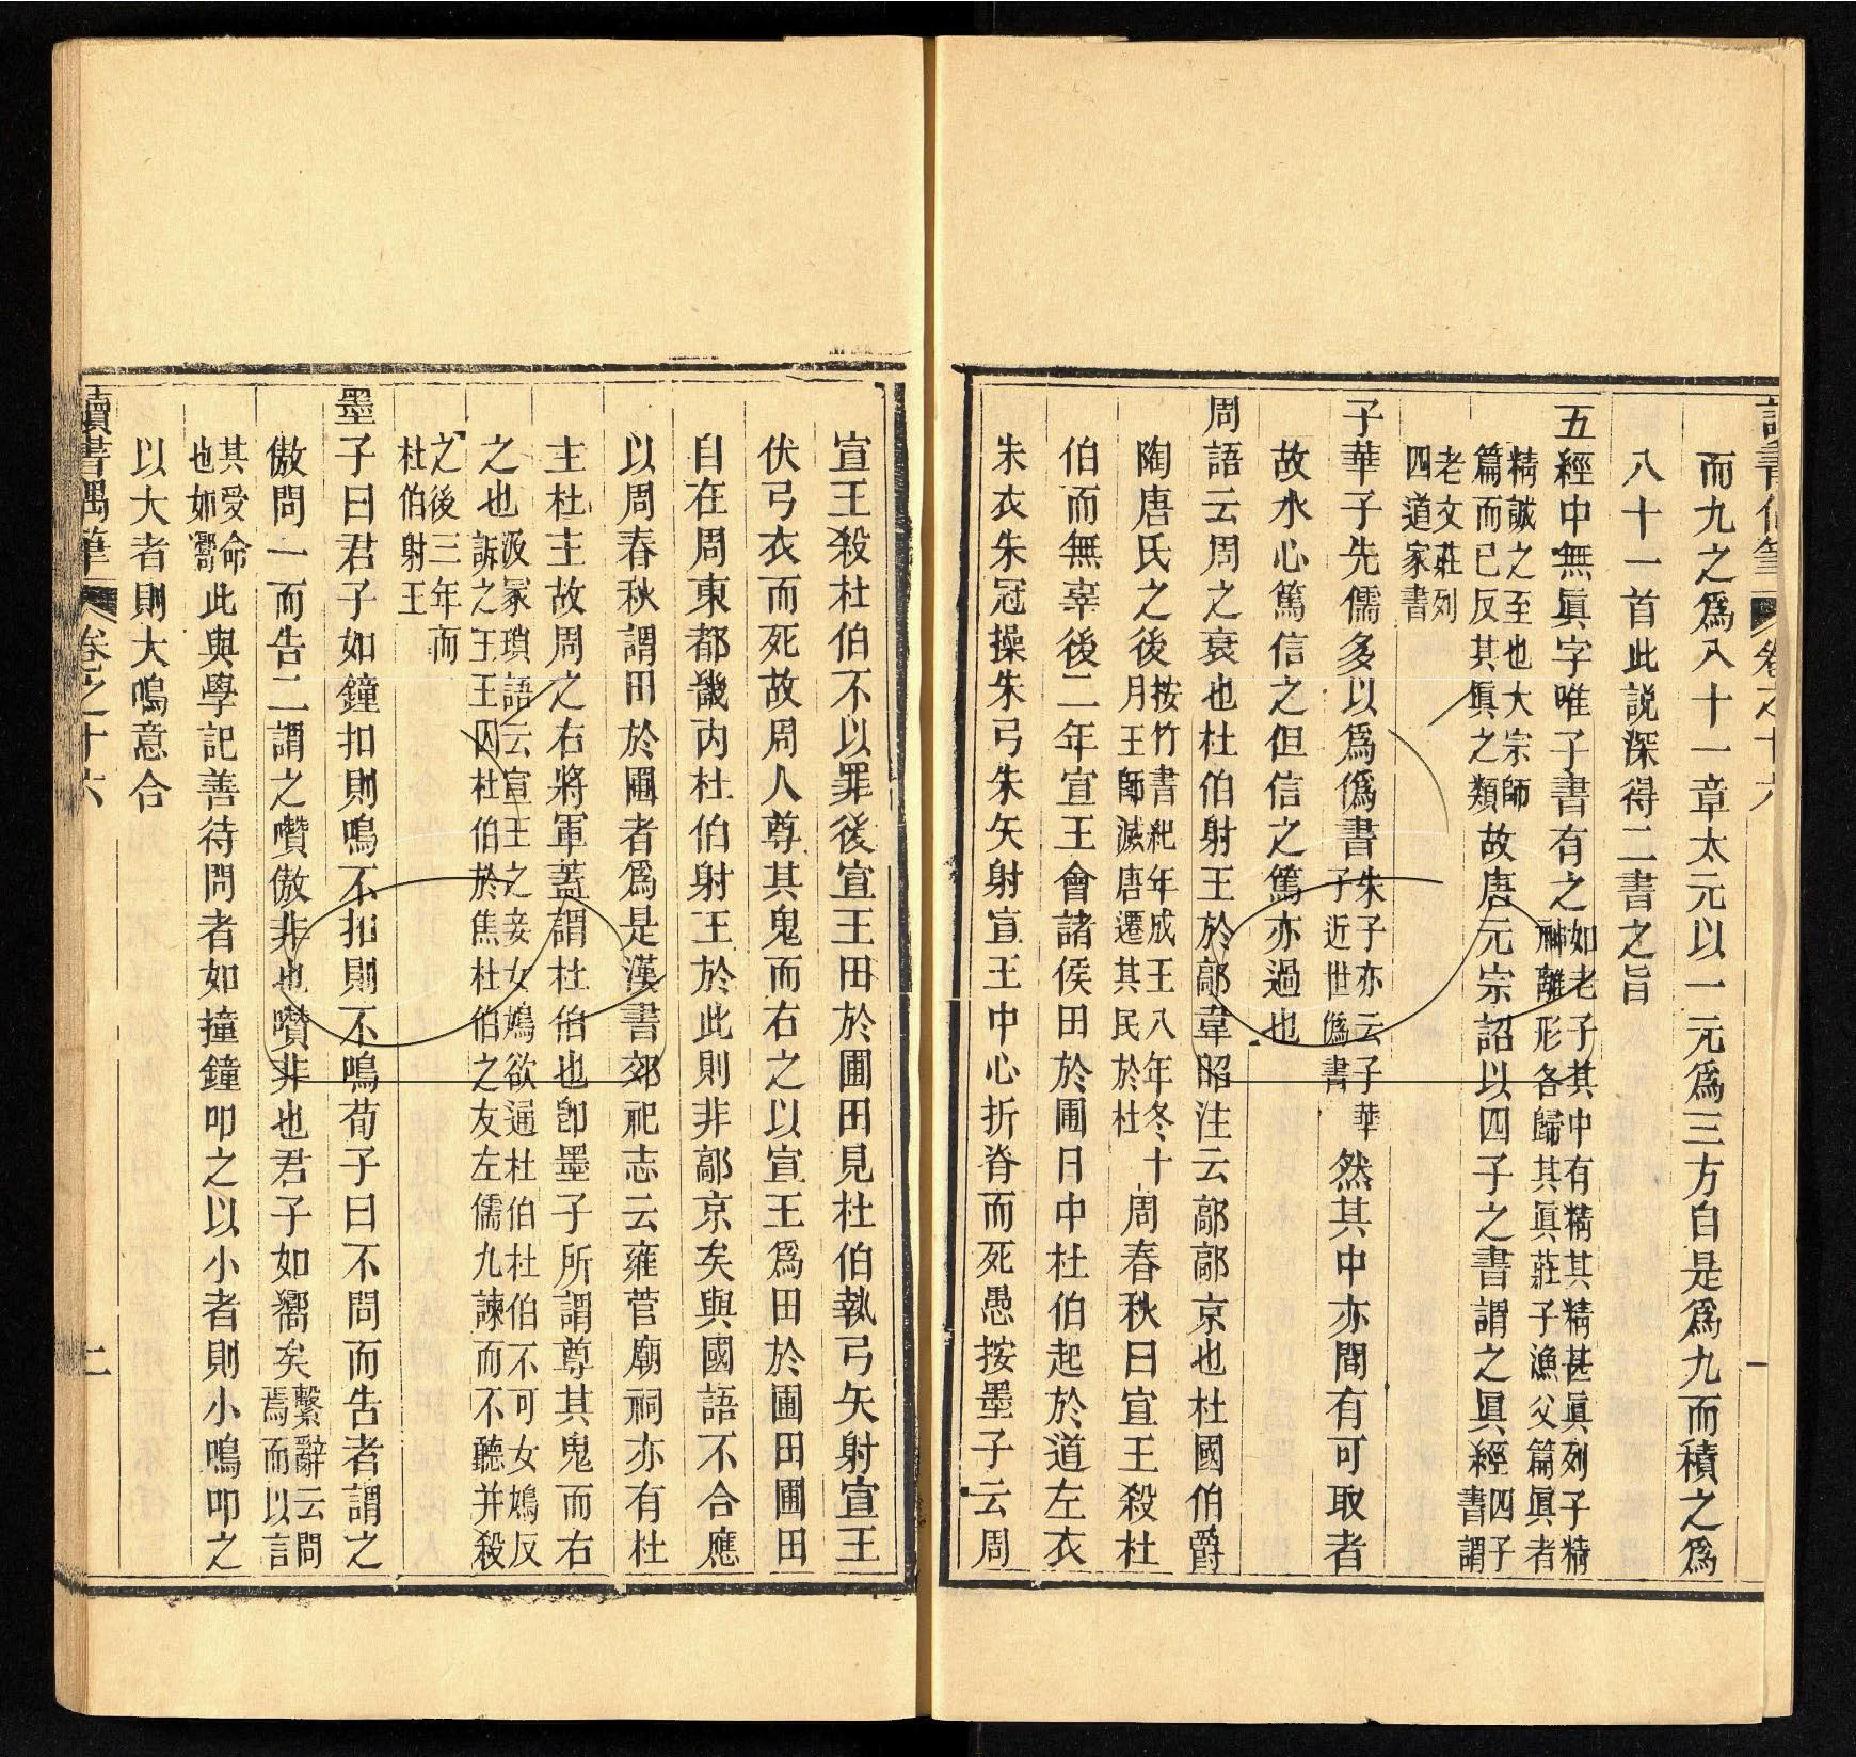 讀書偶筆 卷之十六 一
而九之爲八十一章太元以一元爲三方自是爲九而積之爲
八十一首此説深得二書之旨
五經中無眞字唯子書有之如老子其中有精其精甚眞列子精
神離形各歸其眞莊子漁父篇眞者
精誠之至也大宗師
篇而已反其眞之類故唐元宗詔以四子之書謂之眞經四子
書謂
老文莊列
四道家書
子華子先儒多以爲僞書朱子亦云子華
子近世僞書然其中亦間有可取者
故水心篤信之但信之篤亦過也
周語云周之衰也杜伯射王於鄗韋昭注云鄗鄗京也杜國伯爵
陶唐氏之後按竹書紀年成王八年冬十
月王師滅唐遷其民於杜周春秋曰宣王殺杜
伯而無辜後二年宣王會諸侯田於圃日中杜伯起於道左衣
朱衣朱冠操朱弓朱矢射宣王中心折脊而死愚按墨子云周
宣王殺杜伯不以罪後宣王田於圃田見杜伯執弓矢射宣王
伏弓衣而死故周人尊其鬼而右之以宣王爲田於圃田圃田
自在周東都畿内杜伯射王於此則非鄗京矣與國語不合應
以周春秋謂田於圃者爲是漢書郊祀志云雍菅廟祠亦有杜
主杜主故周之右將軍蓋謂杜伯也卽墨子所謂尊其鬼而右
之也汲冢瑣語云宣王之妾女鳩欲通杜伯杜伯不可女鳩反
訴之王王囚杜伯於焦杜伯之友左儒九諫而不聽并殺
之後三年而
杜伯射王
墨子曰君子如鐘扣則鳴不扣則不鳴荀子曰不問而告者謂之
傲問一而告二謂之囋傲非也囋非也君子如嚮矣繫辭云問
焉而以言
其受命
也如嚮此與學記善待問者如撞鐘叩之以小者則小鳴叩之
以大者則大鳴意合
讀書偶筆 卷之十六 二